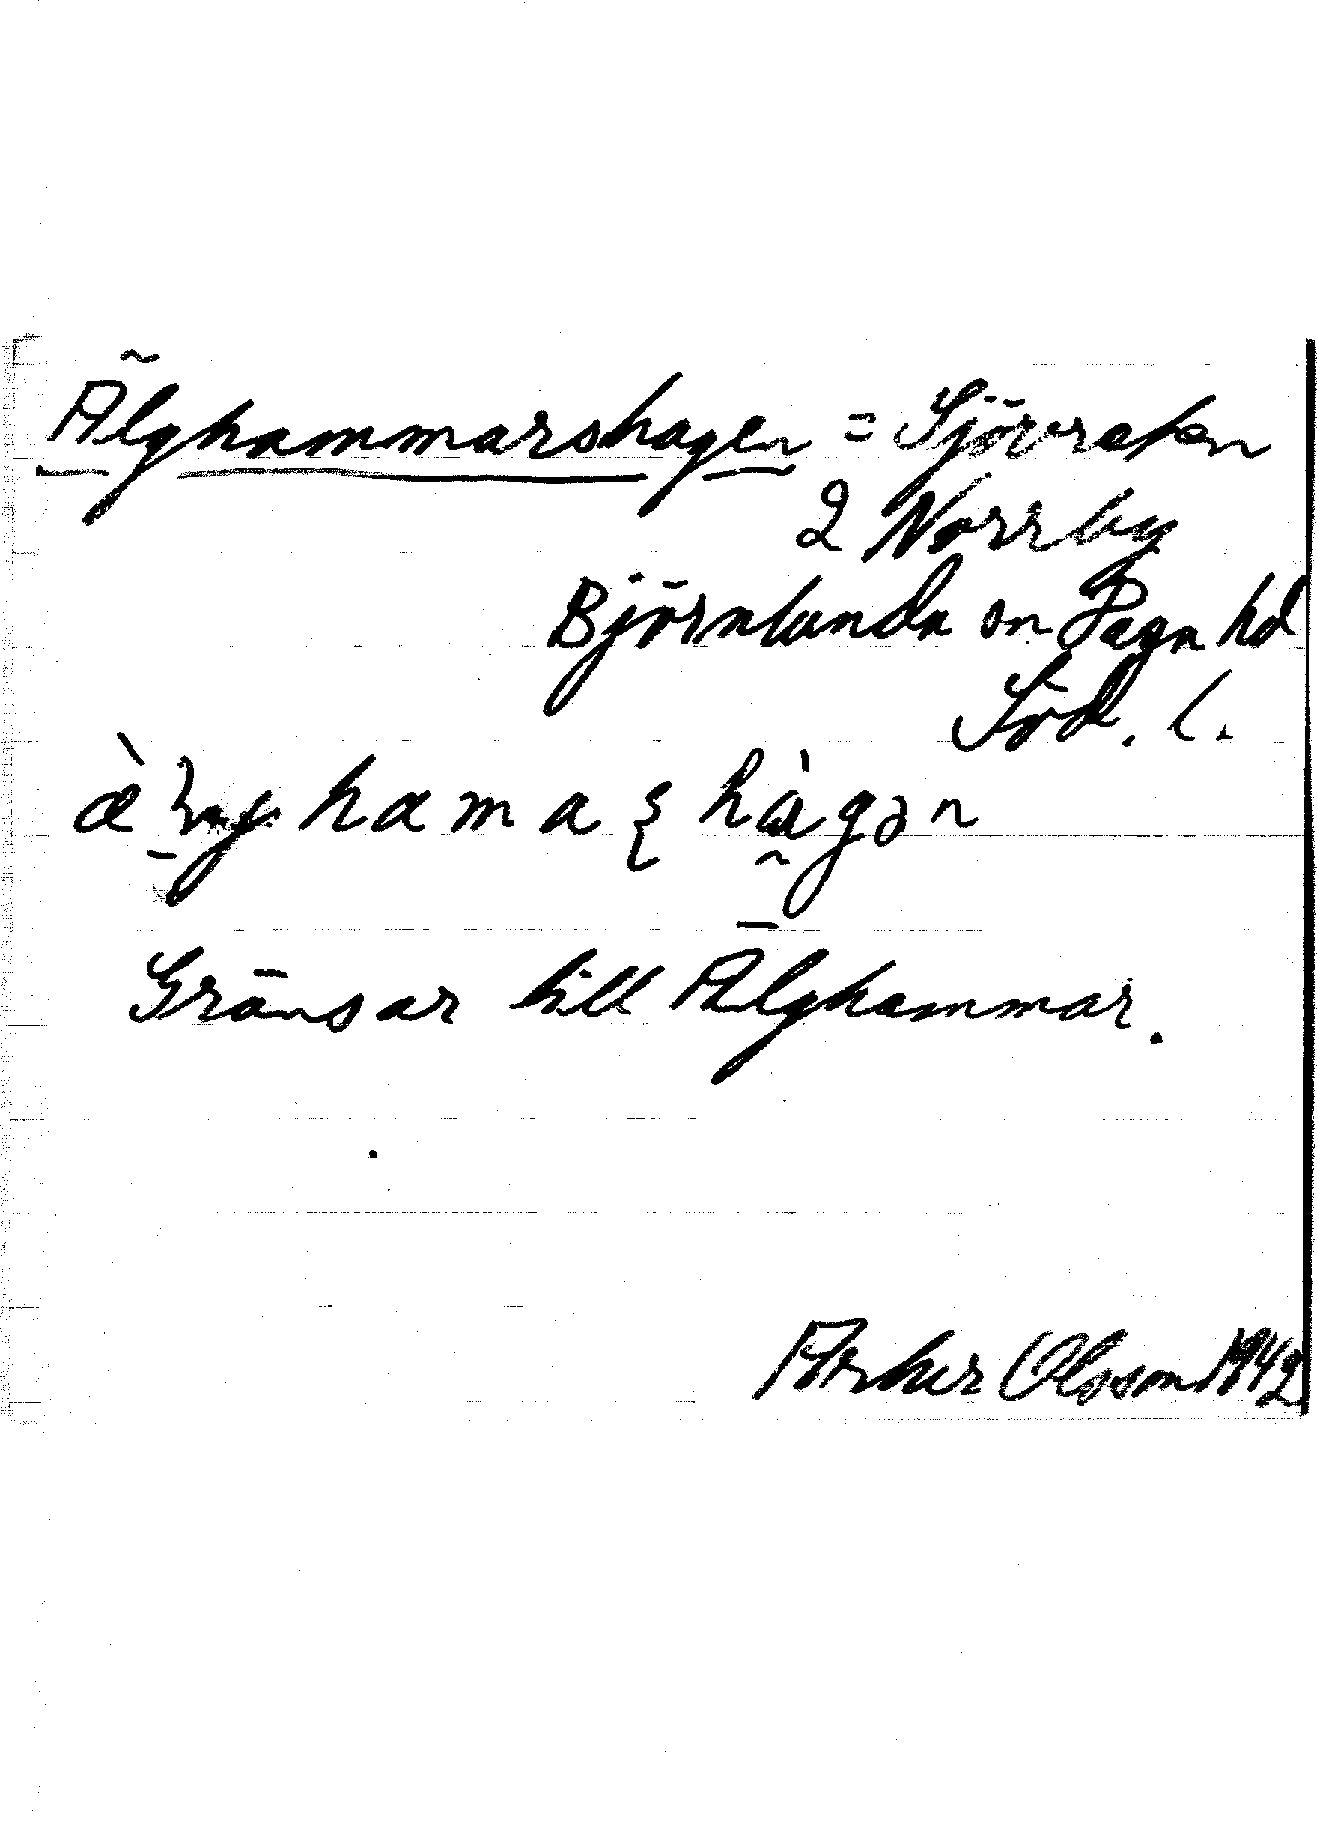 Älghammarshagen = Sjövreten
2 Norrby
Björnlunda sn Daga hd
Söd. l.
hamaʂ hàgən
Gränsar till Älghammar.
Arthur Olsson 1942